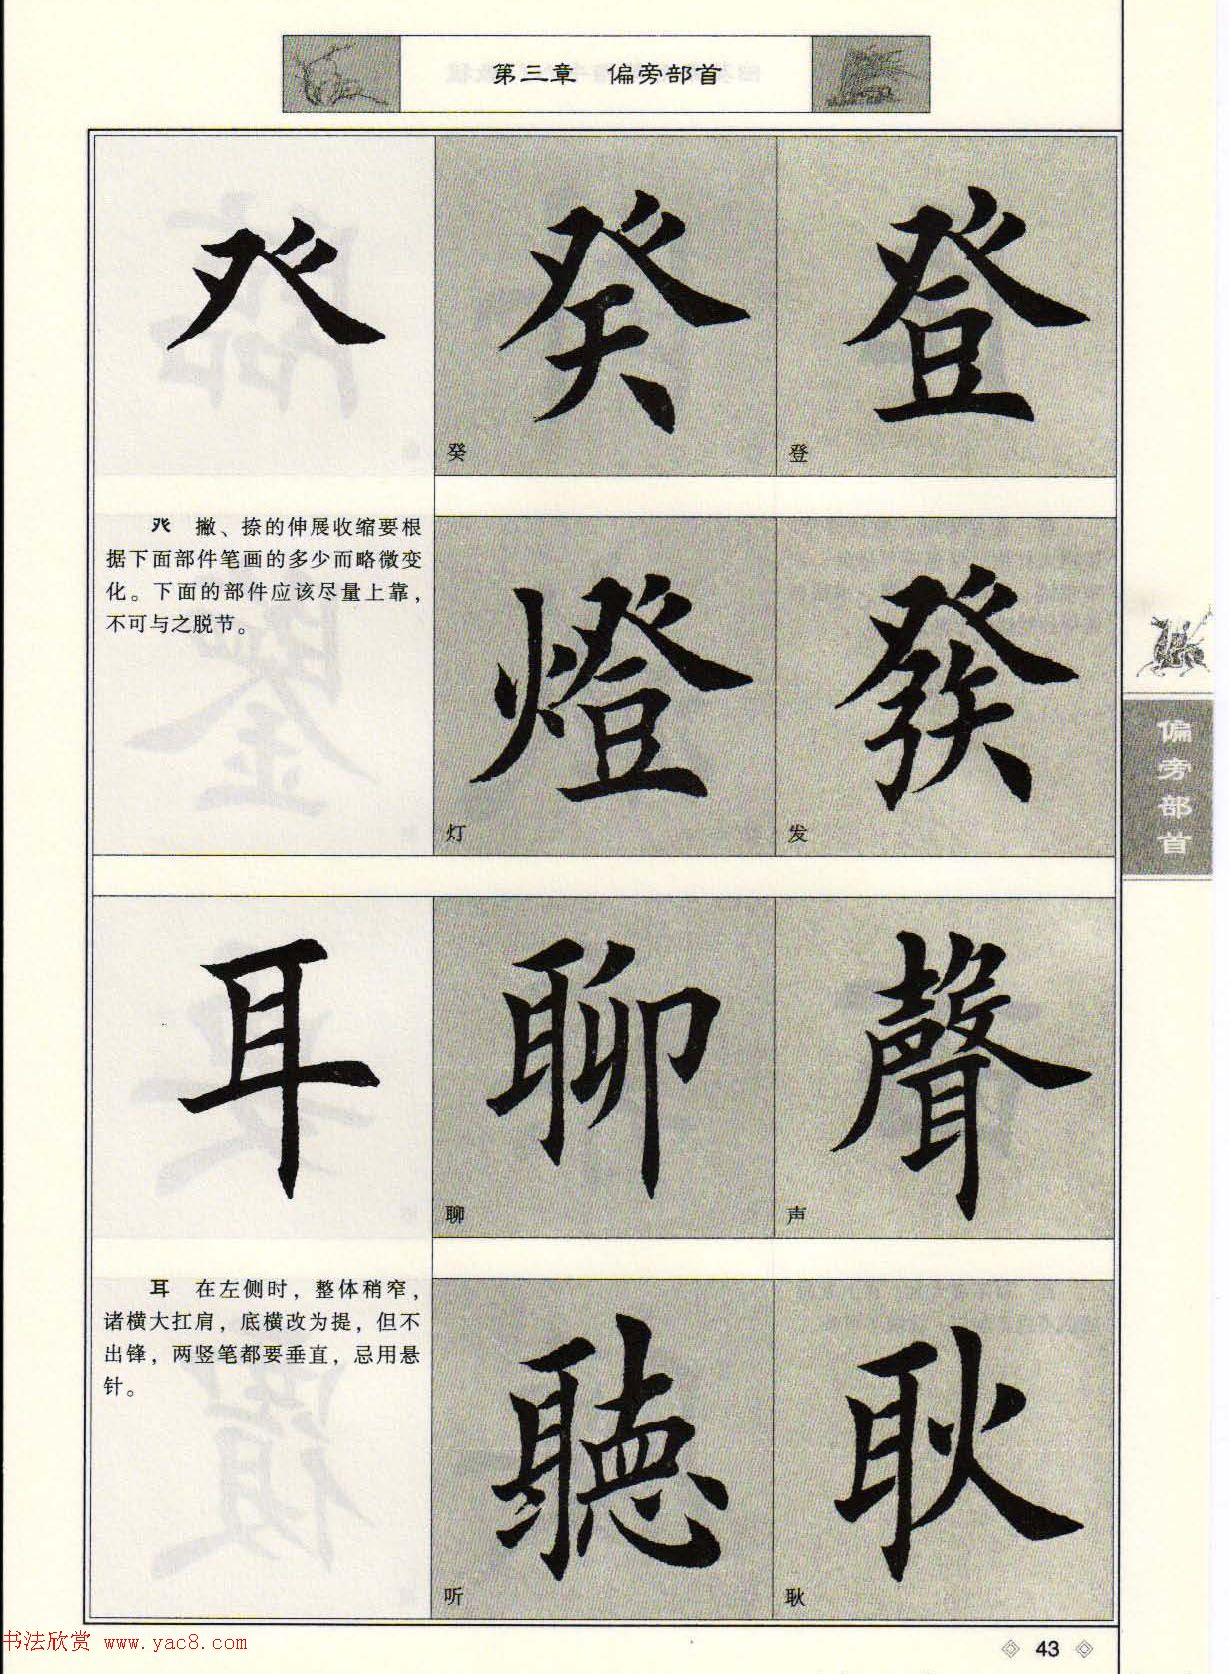 第三章　偏旁部首
癶
癸
癸
登
登
癶　撇、捺的伸展收缩要根
据下面部件笔画的多少而略微变
化。下面的部件应该尽量上靠，
不可与之脱节。
燈
灯
發
发
偏旁部首
耳
聊
聊
聲
声
耳　在左侧时，整体稍窄，
诸横大扛肩，底横改为提，但不
出锋，两竖笔都要垂直，忌用悬
针。
聽
听
耿
耿
书法欣赏 www.yac8.com
43